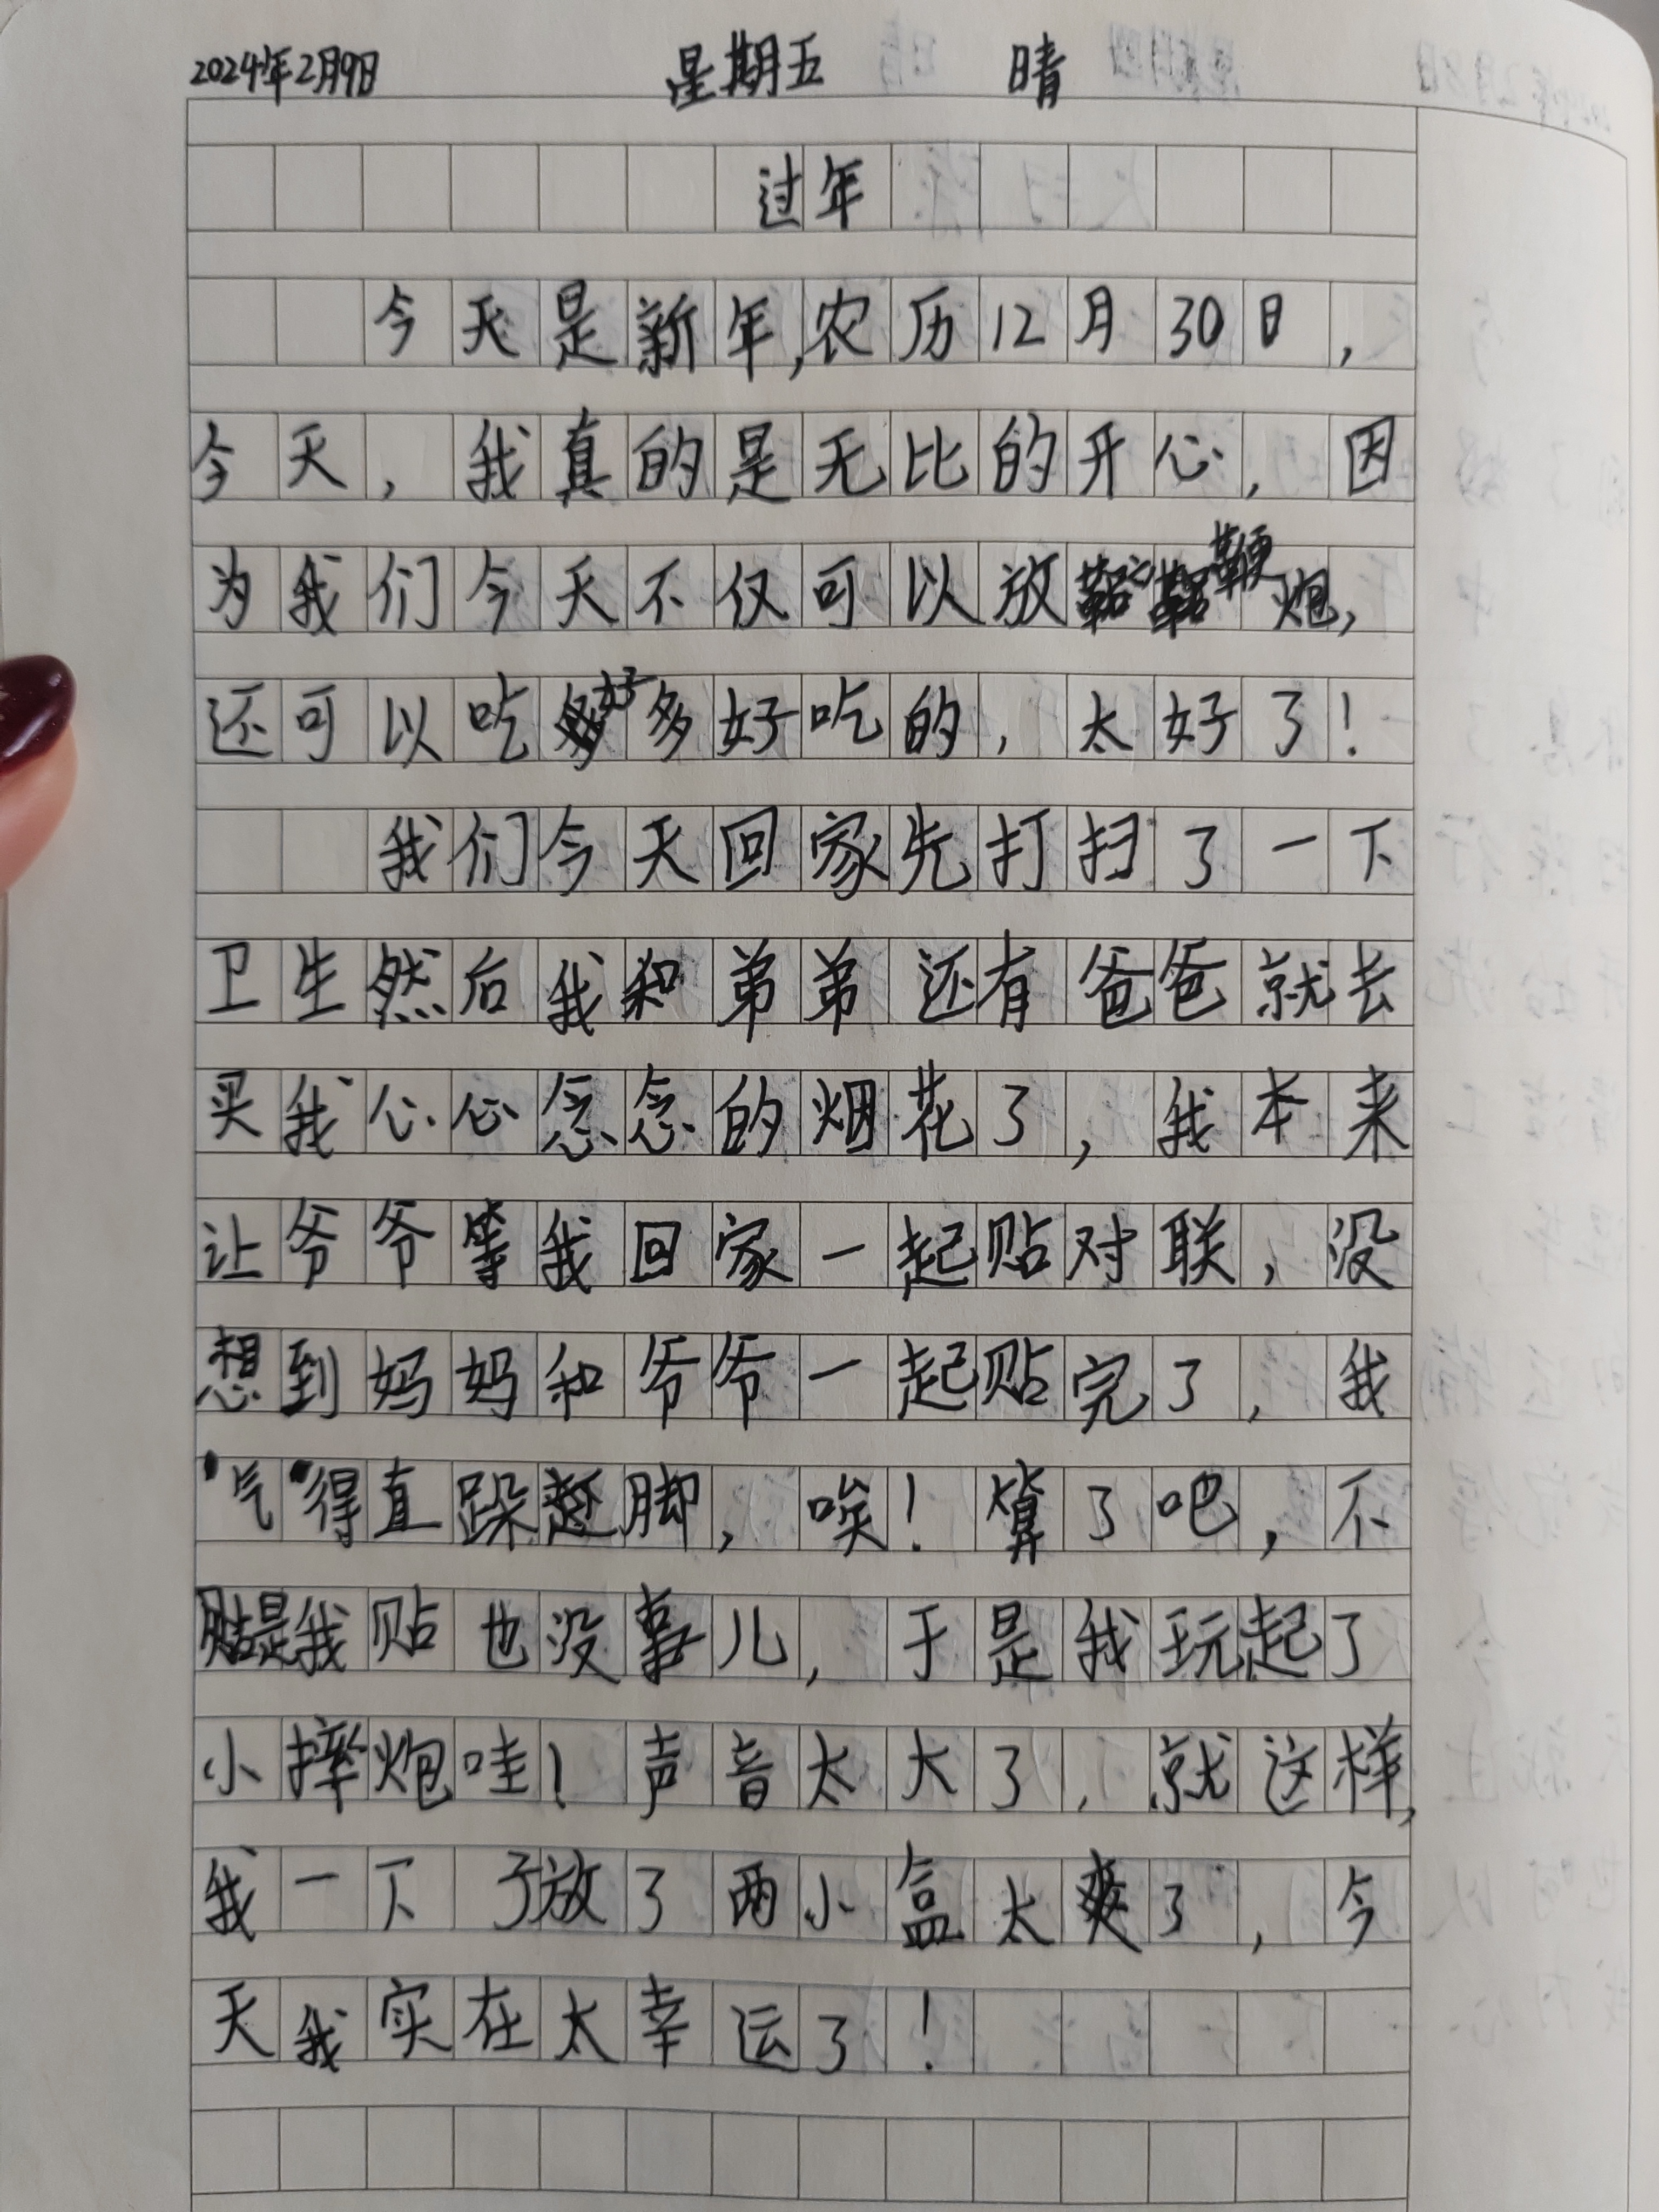 2024年2月9日 星期五 晴
过年
今天是新年,农历12月30日,
今天,我真的是无比的开心,因
为我们今天不仅可以放鞭炮,
还可以吃好多好吃的,太好了!
我们今天回家先打扫了一下
卫生然后我和弟弟还有爸爸就去
买我心心念念的烟花了,我本来
让爷爷等我回家一起贴对联,没
想到妈妈和爷爷一起贴完了,我
气得直跺脚,唉!算了吧,不
是我贴也没事儿,于是我玩起了
小摔炮哇!声音太大了,就这样,
我一下子放了两小盒太爽了,今
天我实在太幸运了!